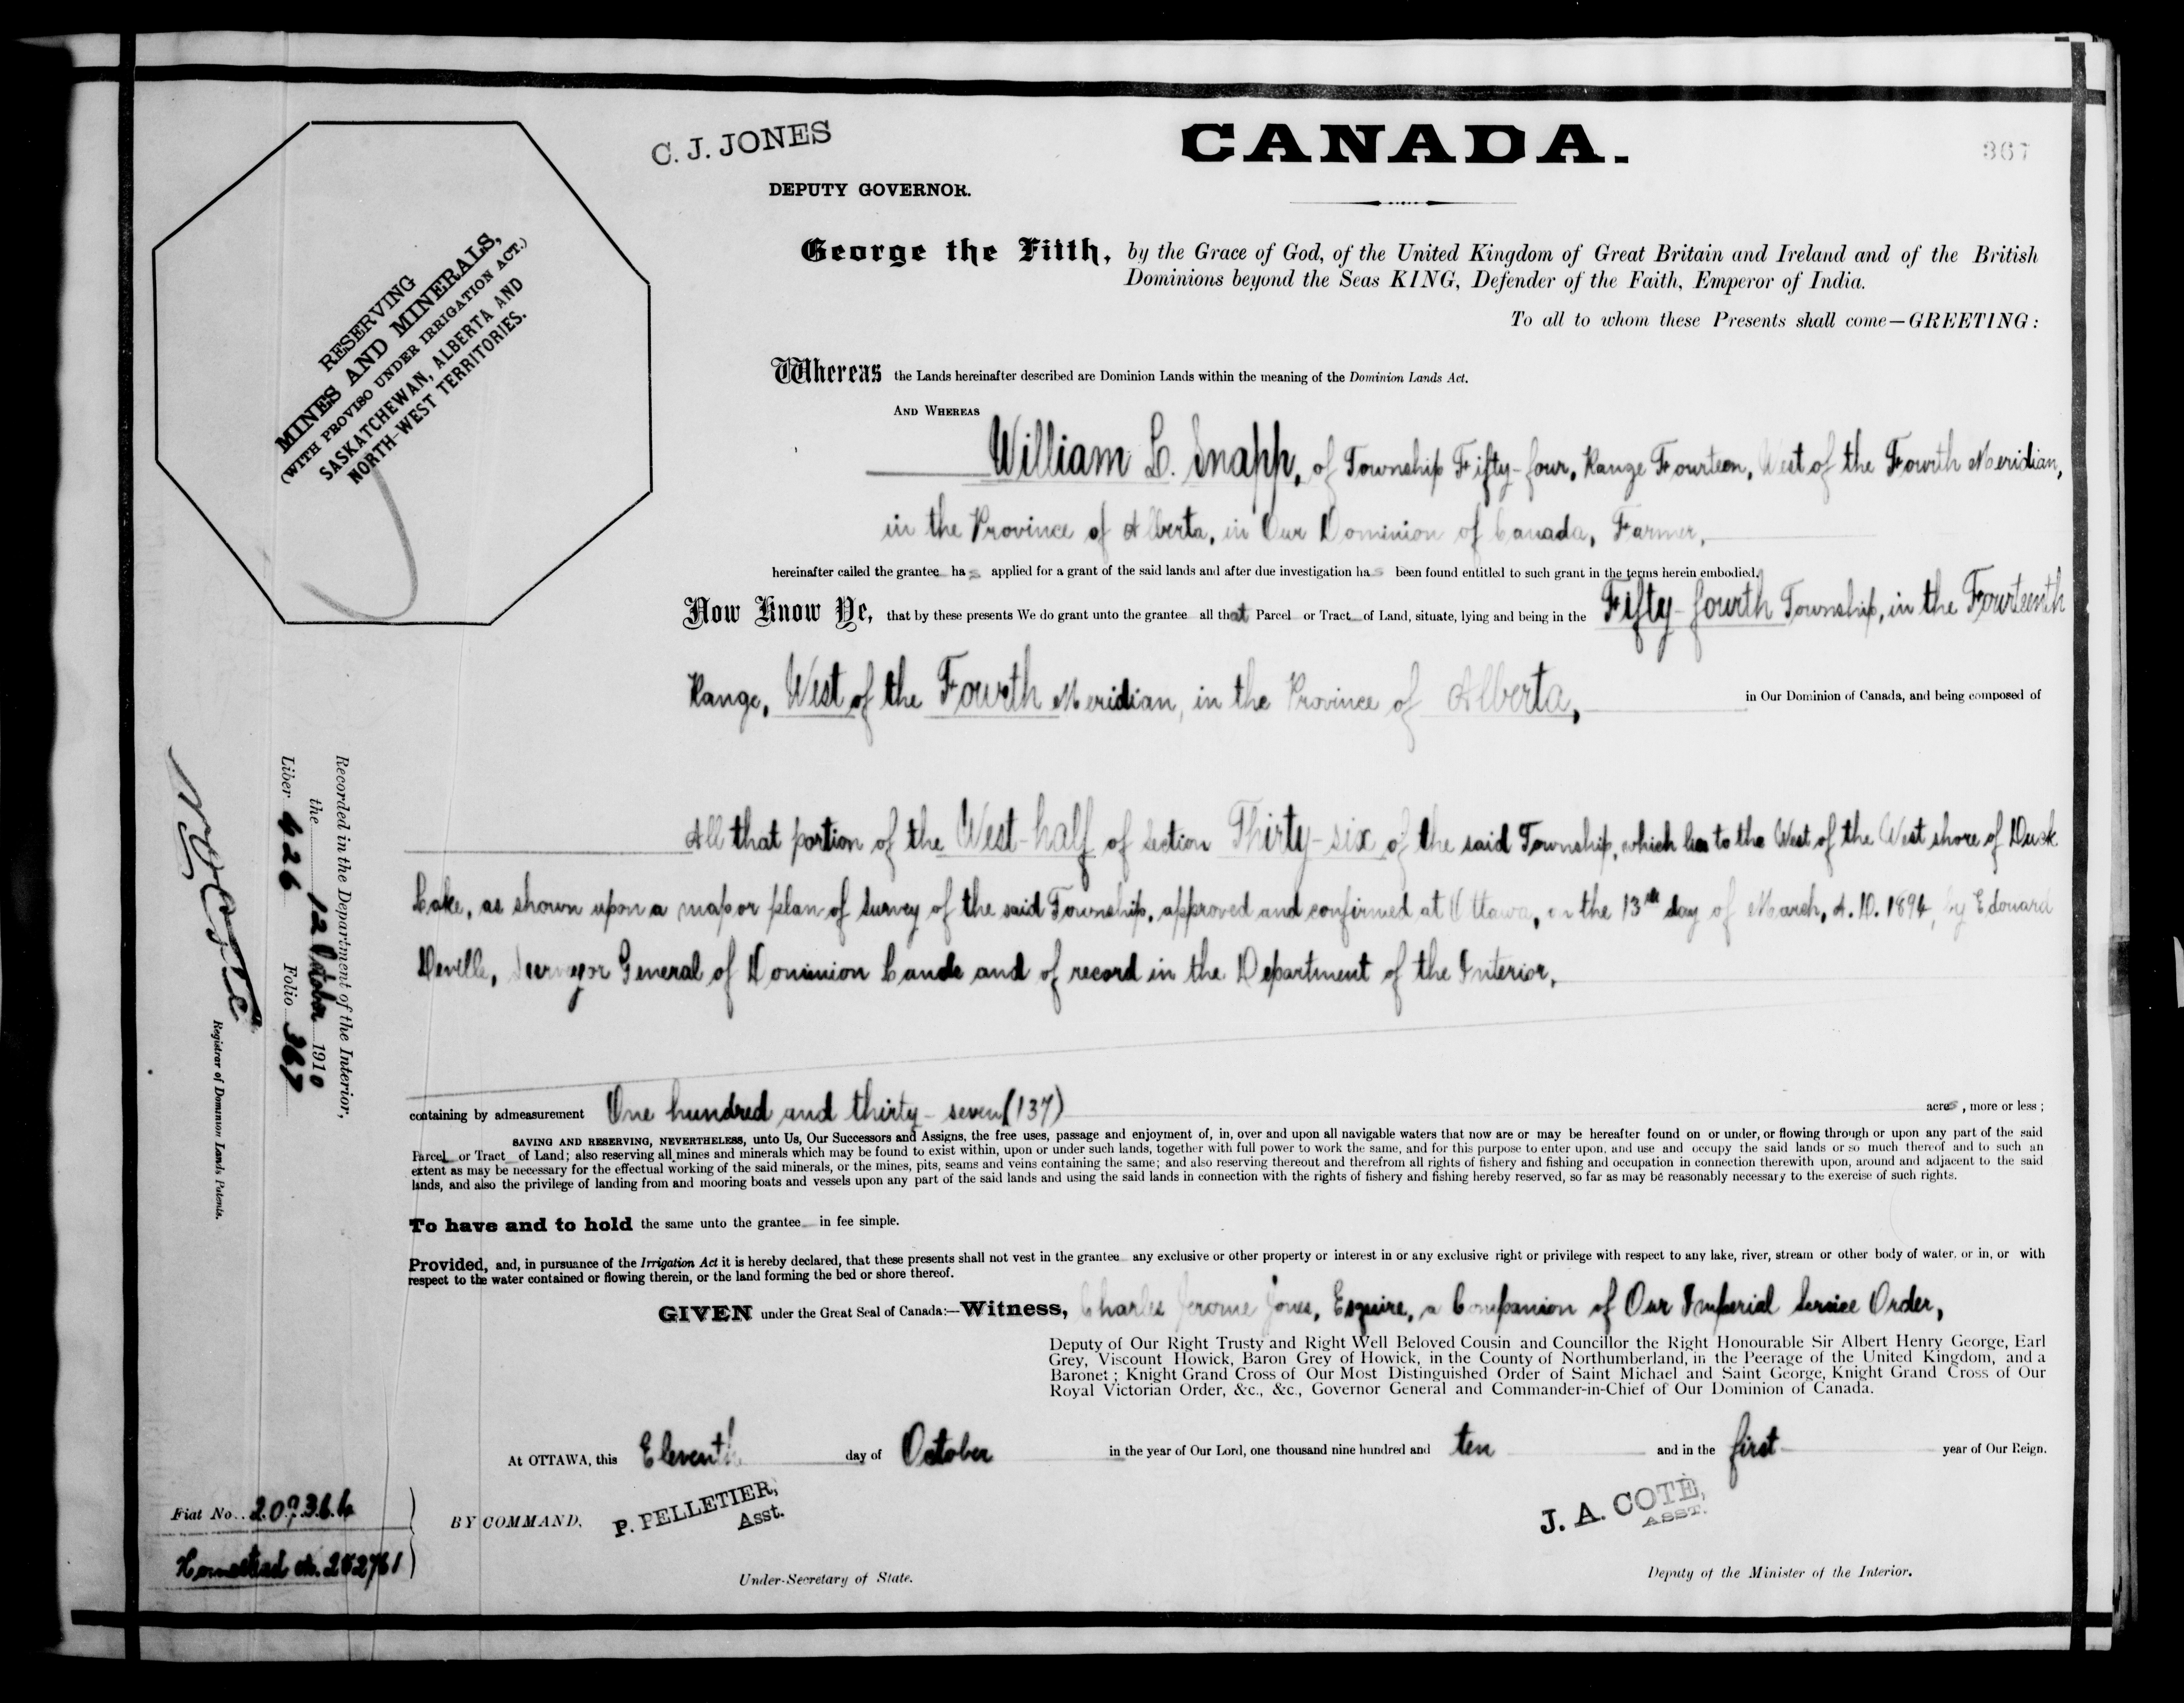 C. J. JONES
DEPUTY GOVERNOR.
CANADA.
367
RESERVING
MINES AND MINERALS,
(WITH PROVISO UNDER IRRIGATION ACT.)
SASKATCHEWAN, ALBERTA AND
NORTH-WEST TERRITORIES.
George the Fifth, by the Grace of God, of the United Kingdom of Great Britain and Ireland and of the British
Dominions beyond the Seas KING, Defender of the Faith, Emperor of India.
To all to whom these Presents shall come—GREETING:
Whereas the Lands hereinafter described are Dominion Lands within the meaning of the Dominion Lands Act.
AND WHEREAS
William L. Snapp, of Township Fifty-four, Range Fourteen, West of the Fourth Meridian,
in the Province of Alberta, in Our Dominion of Canada, Farmer,
hereinafter called the grantee has applied for a grant of the said lands and after due investigation has been found entitled to such grant in the terms herein embodied.
Now Know Ye, that by these presents We do grant unto the grantee all that Parcel or Tract of Land, situate, lying and being in the Fifty-fourth Township, in the Fourteenth
Range, West of the Fourth Meridian, in the Province of Alberta, in Our Dominion of Canada, and being composed of
All that portion of the West-half of Section Thirty-six of the said Township, which lies to the West of the West shore of Duck
Lake, as shown upon a map or plan of survey of the said Township, approved and confirmed at Ottawa, on the 13th day of March, A.D. 1894, by Edouard
Deville, Surveyor General of Dominion Lands and of record in the Department of the Interior,
containing by admeasurement One hundred and thirty-seven (137) acres, more or less;
SAVING AND RESERVING, NEVERTHELESS, unto Us, Our Successors and Assigns, the free uses, passage and enjoyment of, in, over and upon all navigable waters that now are or may be hereafter found on or under, or flowing through or upon any part of the said
Parcel or Tract of Land; also reserving all mines and minerals which may be found to exist within, upon or under such lands, together with full power to work the same, and for this purpose to enter upon, and use and occupy the said lands or so much thereof and to such an
extent as may be necessary for the effectual working of the said minerals, or the mines, pits, seams and veins containing the same; and also reserving thereout and therefrom all rights of fishery and fishing and occupation in connection therewith upon, around and adjacent to the said
lands, and also the privilege of landing from and mooring boats and vessels upon any part of the said lands and using the said lands in connection with the rights of fishery and fishing hereby reserved, so far as may be reasonably necessary to the exercise of such rights.
To have and to hold the same unto the grantee in fee simple.
Provided, and, in pursuance of the Irrigation Act it is hereby declared, that these presents shall not vest in the grantee any exclusive or other property or interest in or any exclusive right or privilege with respect to any lake, river, stream or other body of water, or in, or with
respect to the water contained or flowing therein, or the land forming the bed or shore thereof.
GIVEN under the Great Seal of Canada:—Witness, Charles Jerome Jones, Esquire, a Companion of Our Imperial Service Order,
Deputy of Our Right Trusty and Right Well Beloved Cousin and Councillor the Right Honourable Sir Albert Henry George, Earl
Grey, Viscount Howick, Baron Grey of Howick, in the County of Northumberland, in the Peerage of the United Kingdom, and a
Baronet; Knight Grand Cross of Our Most Distinguished Order of Saint Michael and Saint George, Knight Grand Cross of Our
Royal Victorian Order, &c., &c., Governor General and Commander-in-Chief of Our Dominion of Canada.
At OTTAWA, this Eleventh day of October in the year of Our Lord, one thousand nine hundred and ten and in the first year of Our Reign.
BY COMMAND,
P. PELLETIER,
Asst.
Under-Secretary of State.
J. A. COTE,
ASST.
Deputy of the Minister of the Interior.
Recorded in the Department of the Interior,
the 12 October 1910
Liber 626 Folio 367
Registrar of Dominion Lands Patents.
Fiat No.
Homestead No.